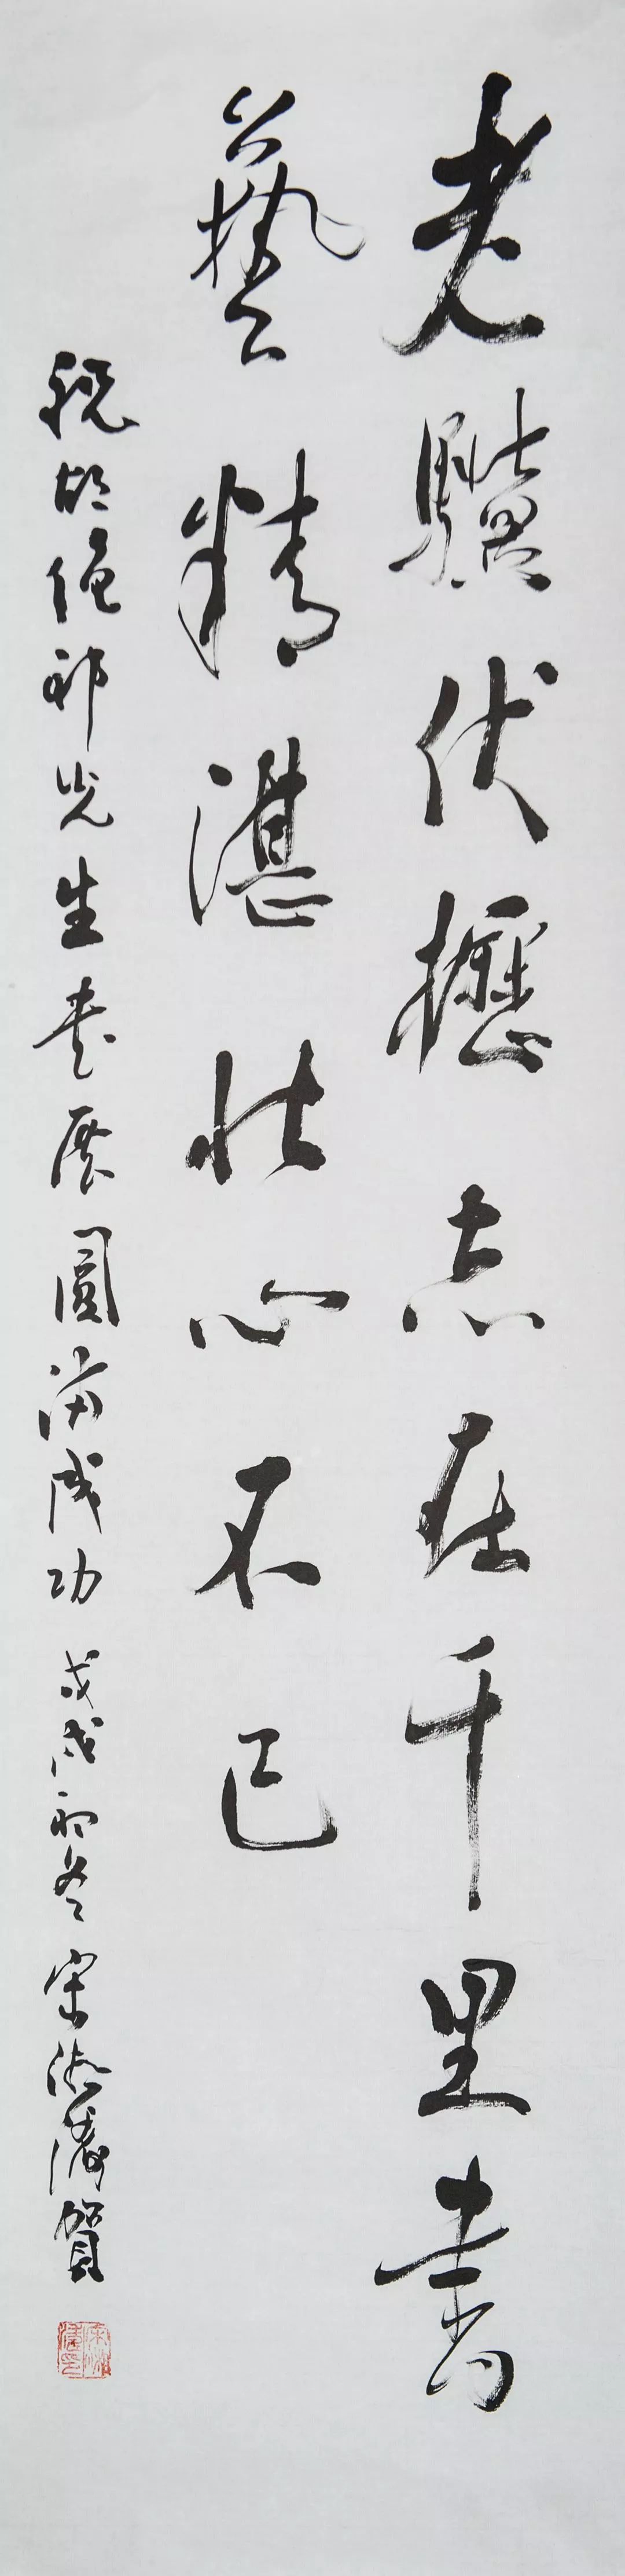 老驥伏櫪志在千里書
藝精湛壯心不已
祝胡祁先生書展圓滿成功 戊戌初冬 宋濤賀